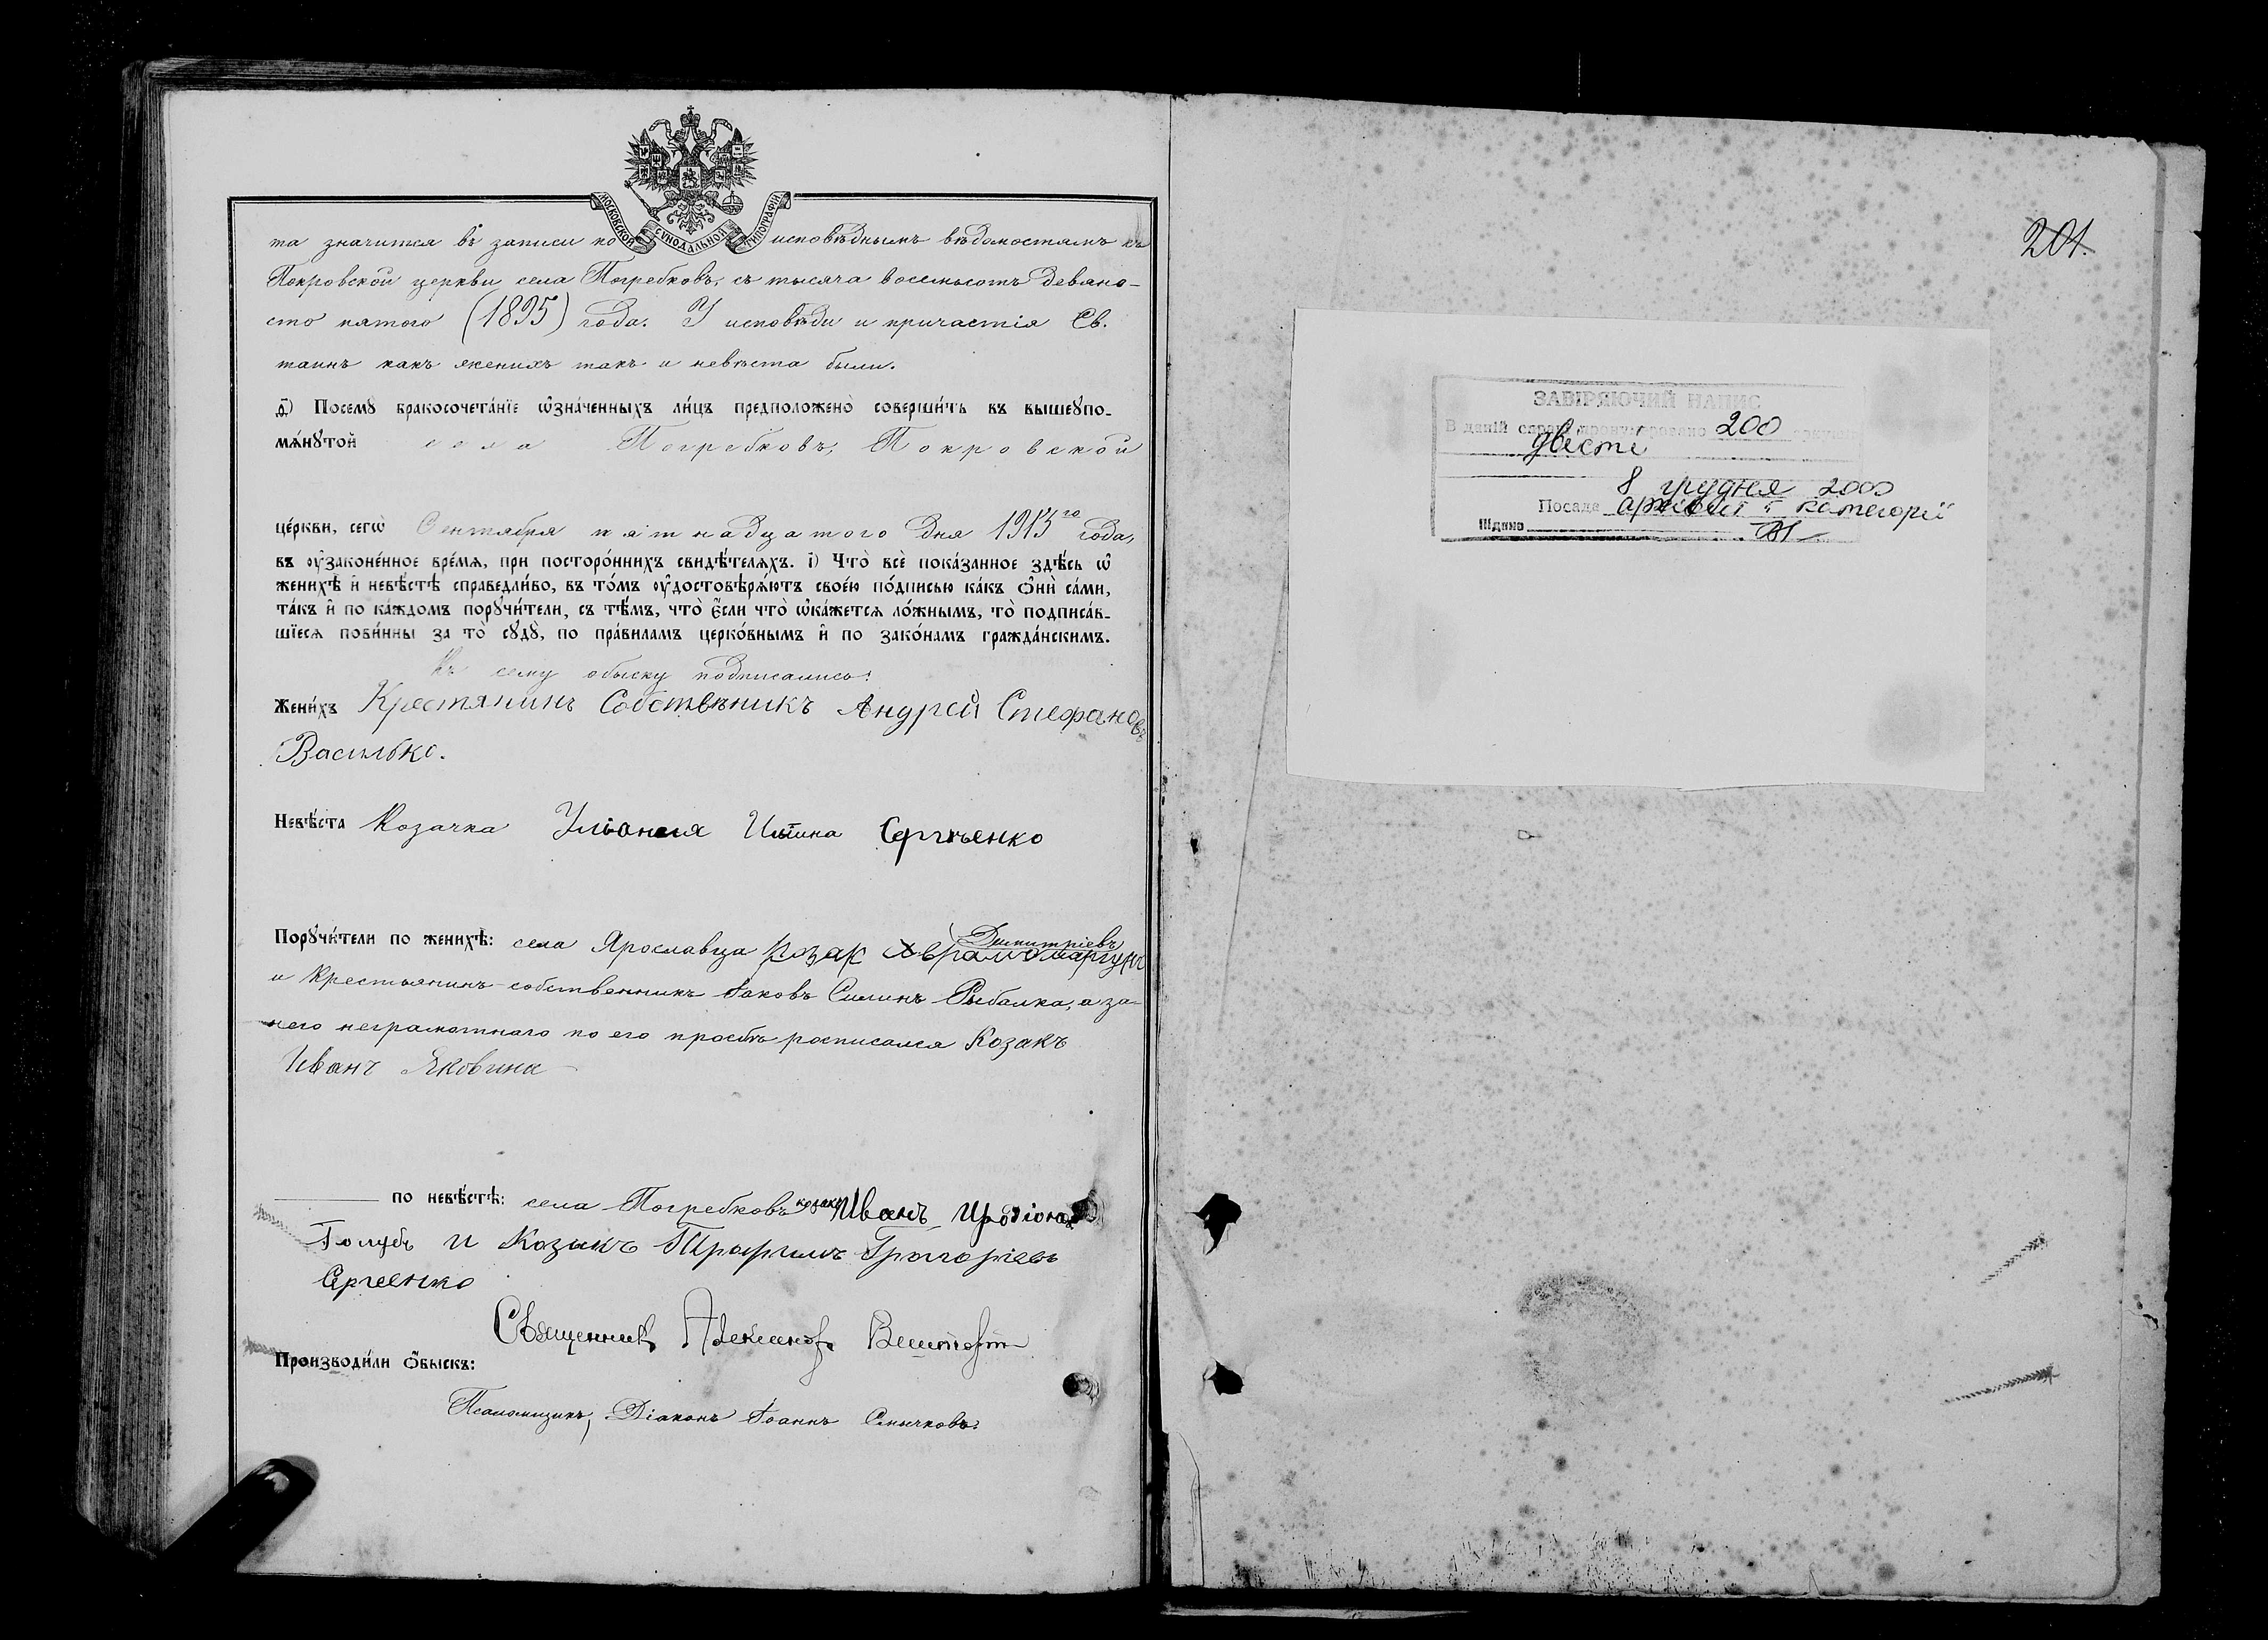 МОСКОВСКОЙ СѴНОДАЛЬНОЙ ТИПОГРАФІИ
та значится въ записи по исповѣднымъ вѣдомостямъ къ
Покровской церкви села Погребковъ, съ тысяча восемьсотъ девяно-
сто пятого (1895) года. У исповѣди и причастія Св.
таинъ какъ женихъ такъ и невѣста были.
д҃) Посемꙋ бракосочета́нїе ѡ҆зна́ченныхъ ли́цъ предположено̀ соверши́ть въ вышеꙋпо-
мѧ́нꙋтой села Погребковъ, Покровской
це́ркви, сегѡ̀ Сентября пятнадцатого дня 1913го года,
въ ᲂу҆законе́нное вре́мѧ, при посторо́ннихъ свидѣ́телѧхъ. і҃) Что̀ всѐ пока́занное здѣ́сь ѡ҆
женихѣ̀ и҆ невѣ́стѣ справедли́во, въ то́мъ ᲂу҆достовѣрѧ́ютъ свое́ю по́дписью ка́къ ѻ҆нѝ са́ми,
та́къ и҆ по ка́ждомъ порꙋчи́тели, съ тѣ́мъ, что̀ є҆́сли что̀ ѡ҆ка́жетсѧ ло́жнымъ, то̀ подписа́в-
шїесѧ пови́нны за то̀ сꙋдꙋ̀, по пра́виламъ церко́внымъ и҆ по зако́намъ гражда́нскимъ.
Къ сему обыску подписались:
Жени́хъ Крестянинъ Собствѣникъ Андрей Стефановъ
Василько.
Невѣ́ста Козачка Ульяния Ильина Сергѣенко
Димитріевъ
Порꙋчи́тели по женихѣ̀: села Ярославца козак
и крестьянинъ-собственникъ Іаковъ Силинъ Рыбалка, а за
него неграмотнаго по его просьбѣ росписался Козакъ
Иванъ Яковина
по невѣ́стѣ: села Погребковъ козакъ Иванъ Иродіонов
Голубъ и Козакъ Трофимъ Григоріевъ
Сергеенко
Священникъ Александръ
Производи́ли ѻ҆́быскъ:
Псаломщикъ, Діаконъ Іоаннъ Смычковъ.
201.
ЗАВІРЯЮЧИЙ НАПИС
В даній справі пронумеровано 200
двісті
8 грудня 2000
Посада архівіст категорії
Підпис